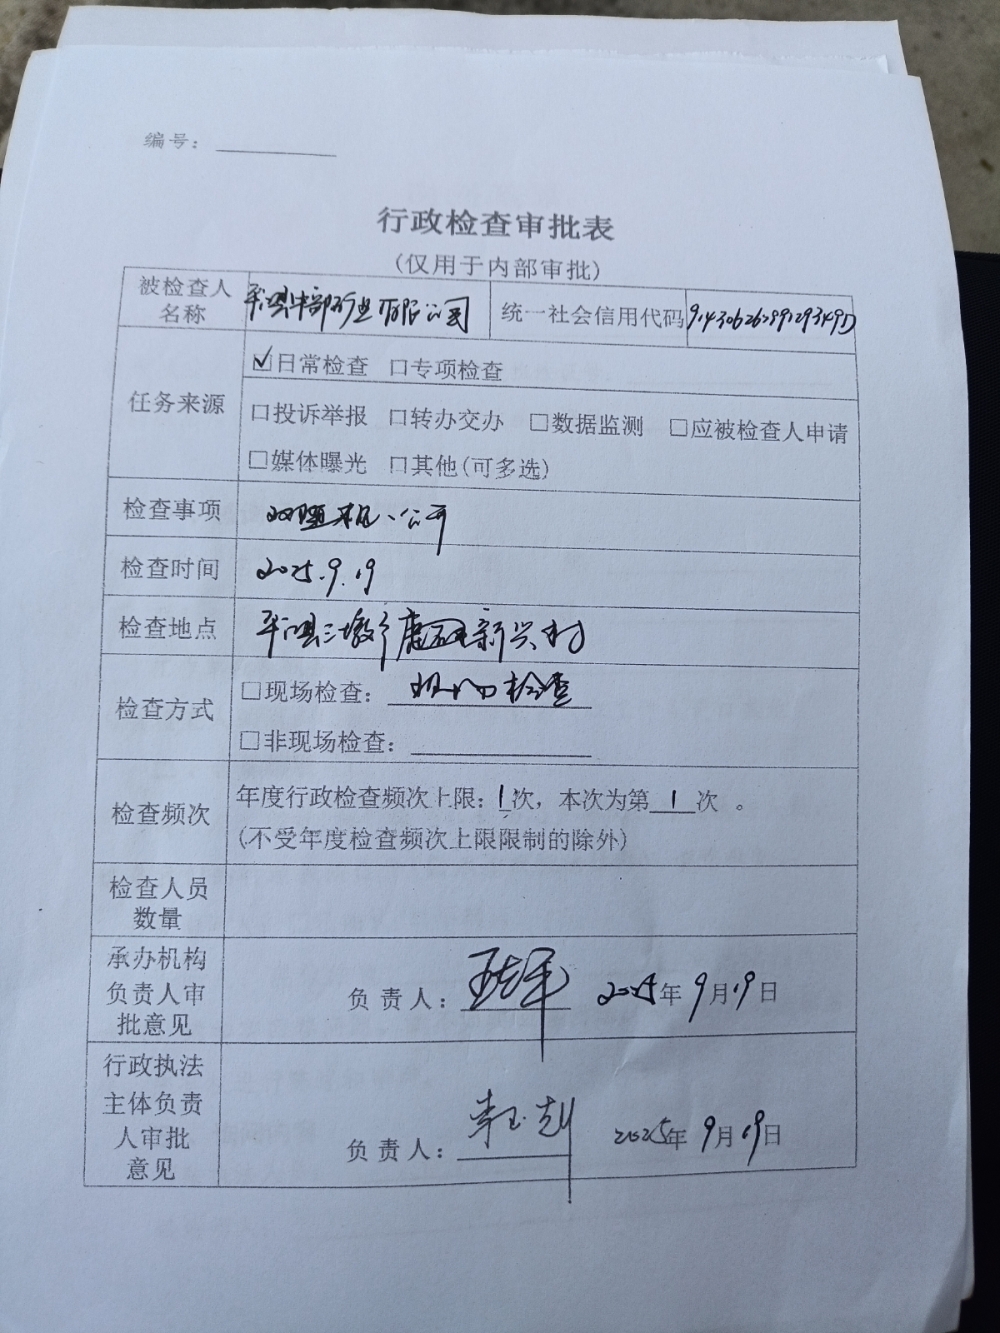 编号：
行政检查审批表
(仅用于内部审批)
被检查人名称 平江县中部矿业有限公司 统一社会信用代码
任务来源
☑日常检查 □专项检查
□投诉举报 □转办交办 □数据监测 □应被检查人申请
□媒体曝光 □其他(可多选)
检查事项 双随机、一公开
检查时间 2025.9.19
检查地点 平江县三墩乡 新兴村
检查方式
□现场检查： 检查
□非现场检查：
检查频次
年度行政检查频次上限：1次，本次为第1次 。
(不受年度检查频次上限限制的除外)
检查人员
数量
承办机构
负责人审
批意见
负责人： 2025年9月19日
行政执法
主体负责
人审批
意见
负责人： 2025年9月19日